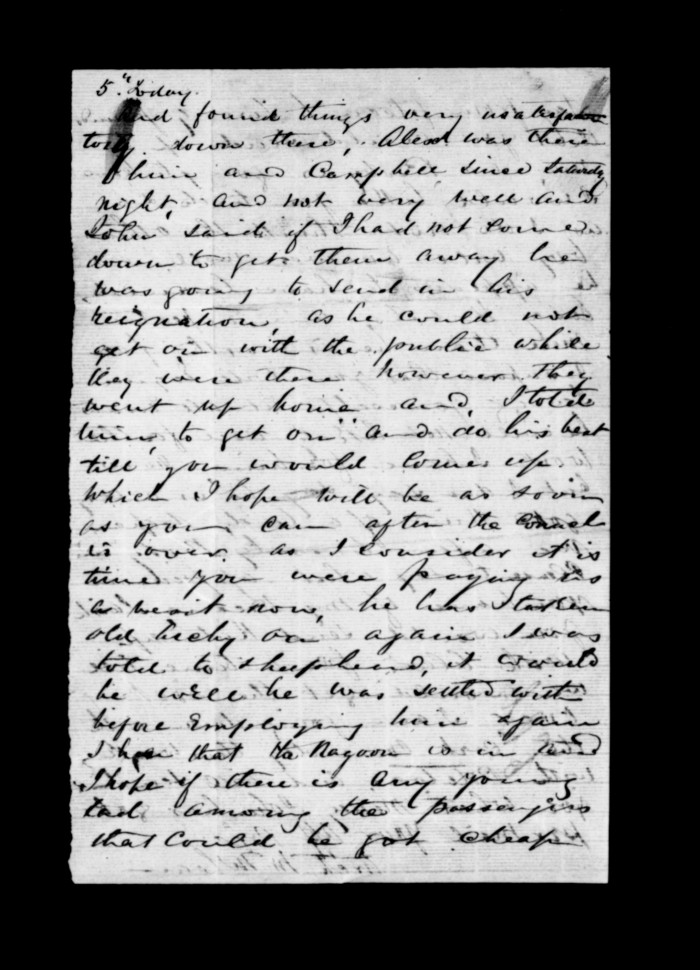 5th Today.
And found things very unsatisfac
tory down there, Alexr was there
him and Campbell since Saturday
night, and not very well and
John said if I had not Come
down to get them away he
was going to send in his
resignation, as he could not
get on with the public while
they were there however they
went up home and, I told
him, to get on" and do his best
till, you would Come up
which I hope will be as soon
as you can after the Council
is over. as I consider it is
time you were paying us
a visit now, he has taken
old on again I was
told to shepherd, it would
be well he was settled with
before Employing him again
I hear that is in and
I hope if there is any young
lad among the passengers
that Could be got cheap